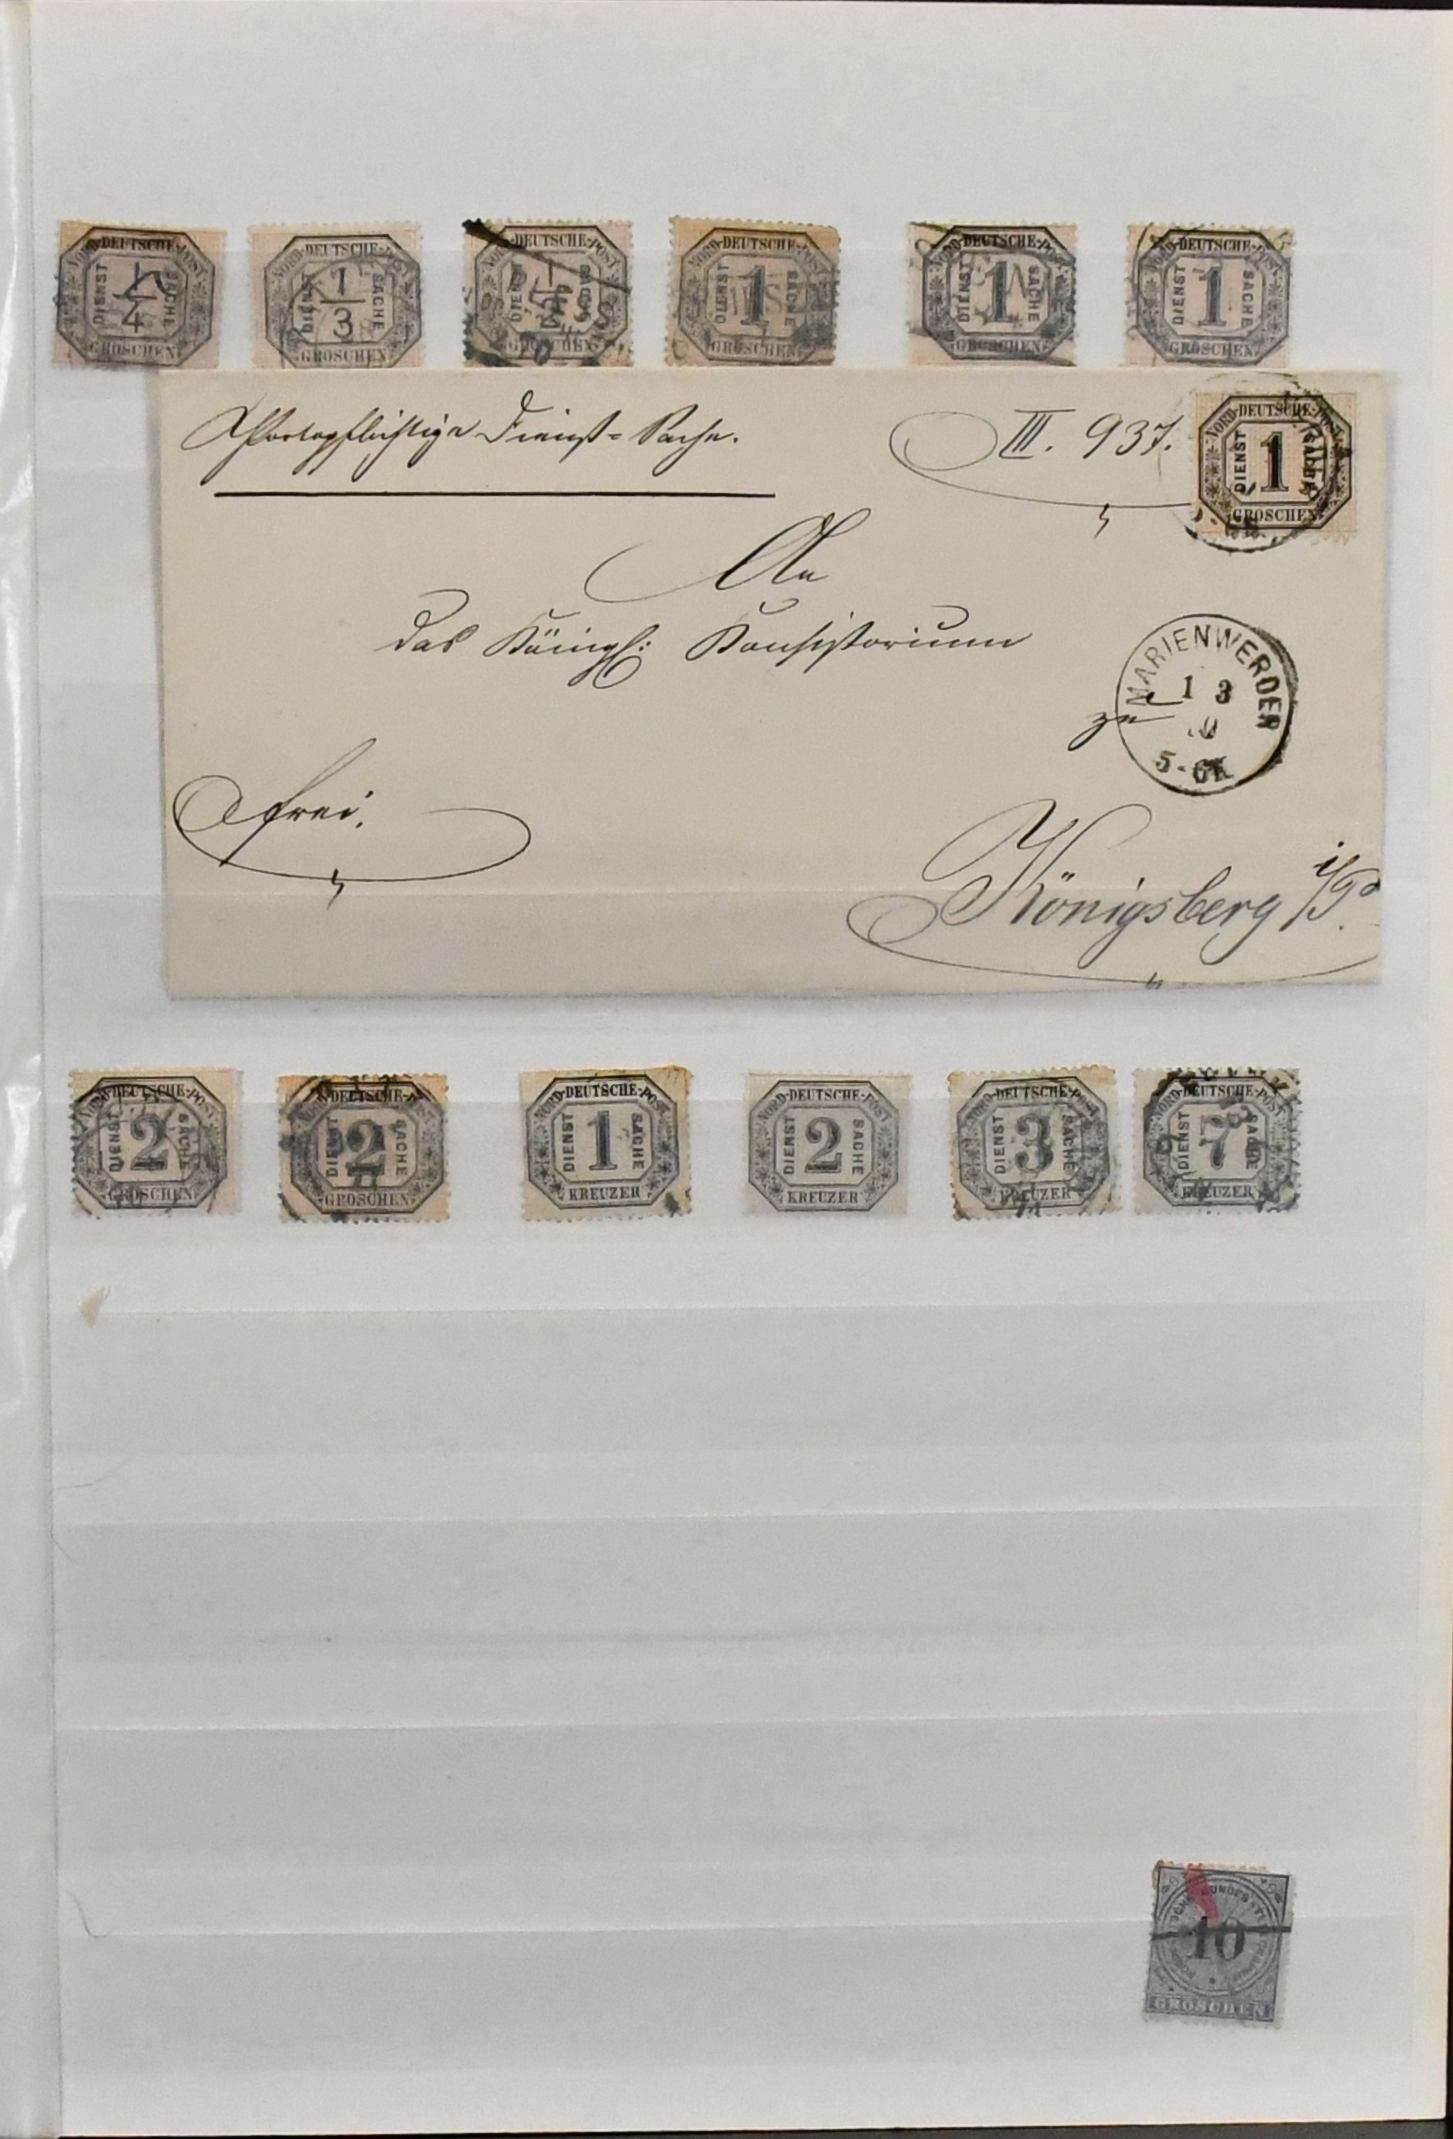 NORD-DEUTSCHE-POST DIENST SACHE 1/4 GROSCHEN
NORD-DEUTSCHE-POST DIENST SACHE 1/3 GROSCHEN
NORD-DEUTSCHE-POST DIENST SACHE GROSCHEN
NORD-DEUTSCHE-POST DIENST SACHE 1 GROSCHEN
NORD-DEUTSCHE-POST DIENST SACHE 1 GROSCHEN
NORD-DEUTSCHE-POST DIENST SACHE 1 GROSCHEN
Portopflichtige Dienst-Sache.
III. 937.
NORD-DEUTSCHE-POST DIENST SACHE 1 GROSCHEN
An
das Königl: Konsistorium
zu
MARIENWERDER
1 3
5-6
frei.
Königsberg i/P
NORD-DEUTSCHE-POST DIENST SACHE 2 GROSCHEN
NORD-DEUTSCHE-POST DIENST SACHE 2 GROSCHEN
NORD-DEUTSCHE-POST DIENST SACHE 1 KREUZER
NORD-DEUTSCHE-POST DIENST SACHE 2 KREUZER
NORD-DEUTSCHE-POST DIENST SACHE 3
NORD-DEUTSCHE-POST DIENST SACHE 7 KREUZER
10
GROSCHEN